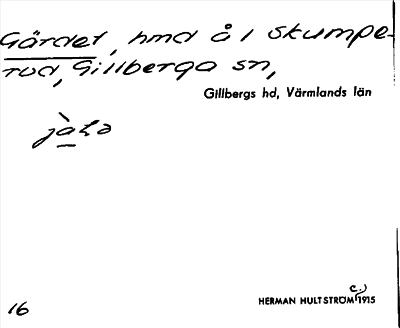 Gärdet, hmd å 1 Skumpe-
rud, Gillberga sn,
Gillbergs hd, Värmlands län
HERMAN HULTSTRÖM c.) 1915
16